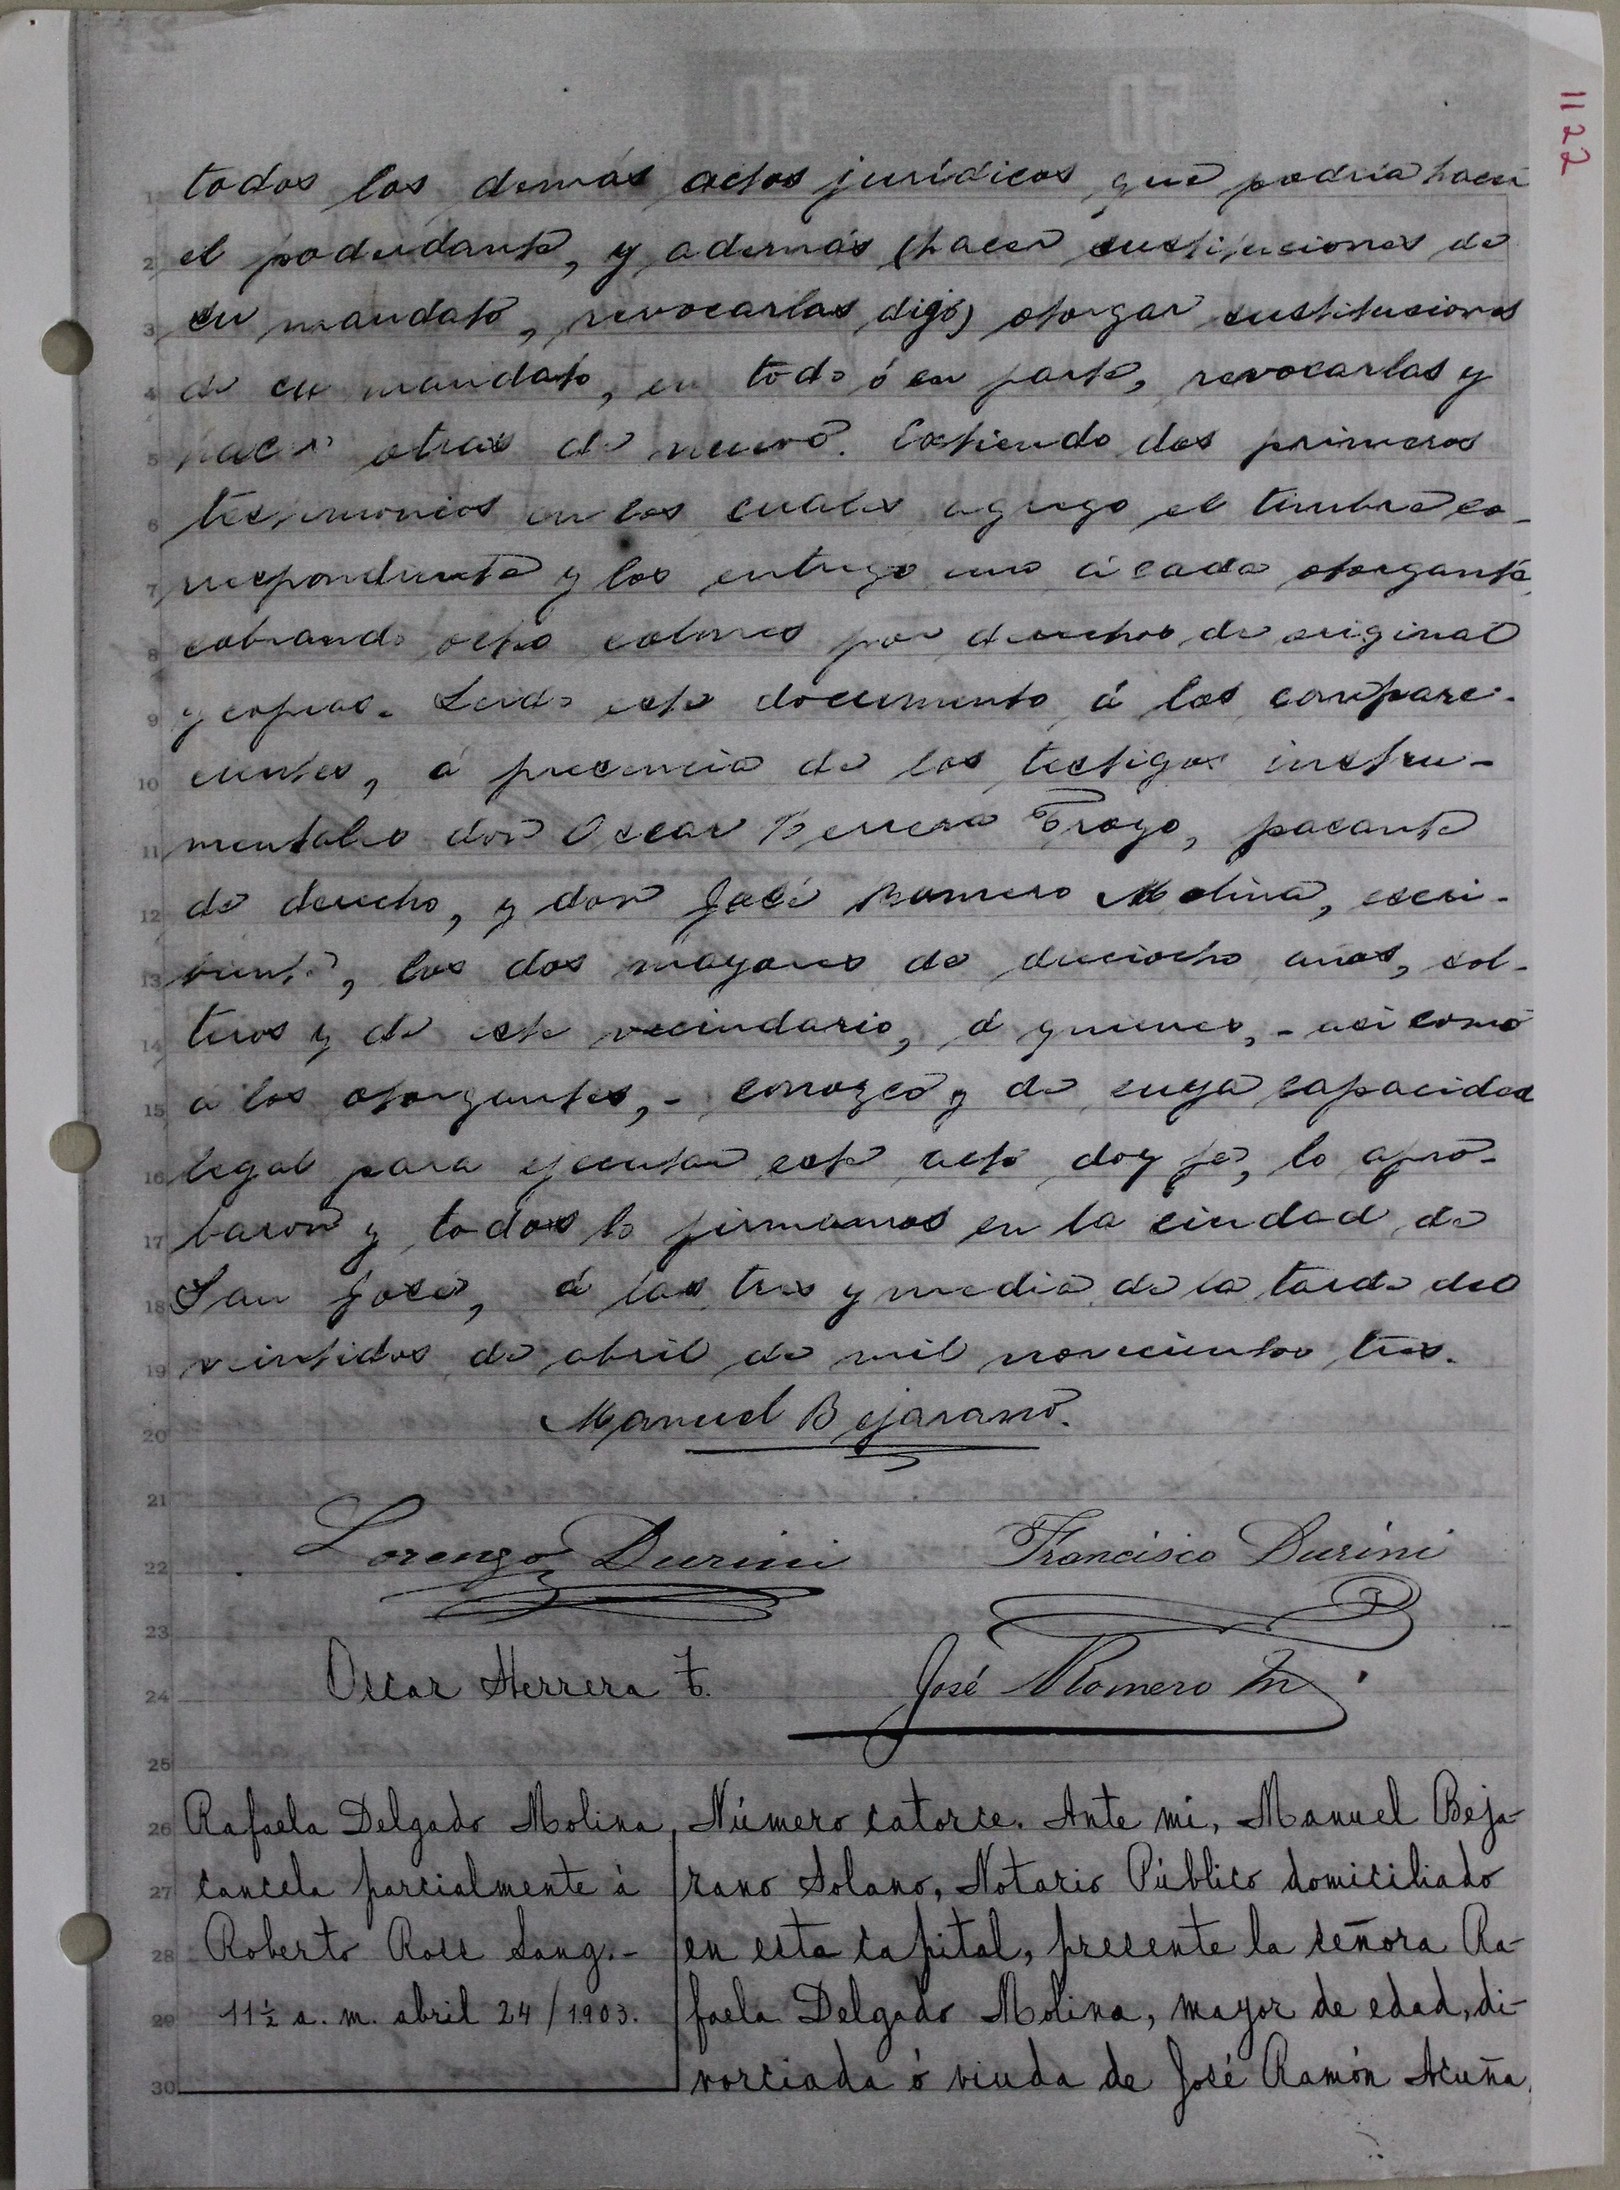 1122
50 50
1 todos los demás actos jurídicos que podría hacer
2 el poderdante, y además (hacer sustituciones de
3 su mandato, revocarlas digo) otorgar sustituciones
4 de su mandato, en todo ó en parte, revocarlas y
5 hacer otras de nuevo. Extiendo dos primeros
6 testimonios en los cuales agrego el timbre co-
7 rrespondiente y los entrego uno á cada otorgante,
8 cobrando ocho colones por derechos de original
9 y copias. Leido este documento á los compare-
10 cientes, á presencia de los testigos instru-
11 mentales don Oscar Herrera Troyo, pasante
12 de derecho, y don José Romero Molina, escri-
13 biente, los dos mayores de dieciocho años, sol-
14 teros y de este vecindario, á quienes, - asi como
15 á los otorgantes, - conozco y de cuya capacidad
16 legal para ejecutar este acto doy fe, lo apro-
17 baron y todos lo firmamos en la ciudad de
18 San José, á las tres y media de la tarde del
19 veintidos de abril de mil novecientos tres.
20 Manuel Bejarano.
21
22 Lorenzo Durini Francisco Durini
23
24 Oscar Herrera T. José Romero M
25
26 Rafaela Delgado Molina, Número catorce. Ante mi, Manuel Beja-
27 cancela parcialmente á rano Solano, Notario Público domiciliado
28 Roberto Ross Lang.- en esta capital, presente la señora Ra-
29 11½ a. m. abril 24/1903. faela Delgado Molina, mayor de edad, di-
30 vorciada ó viuda de José Ramón Acuña,